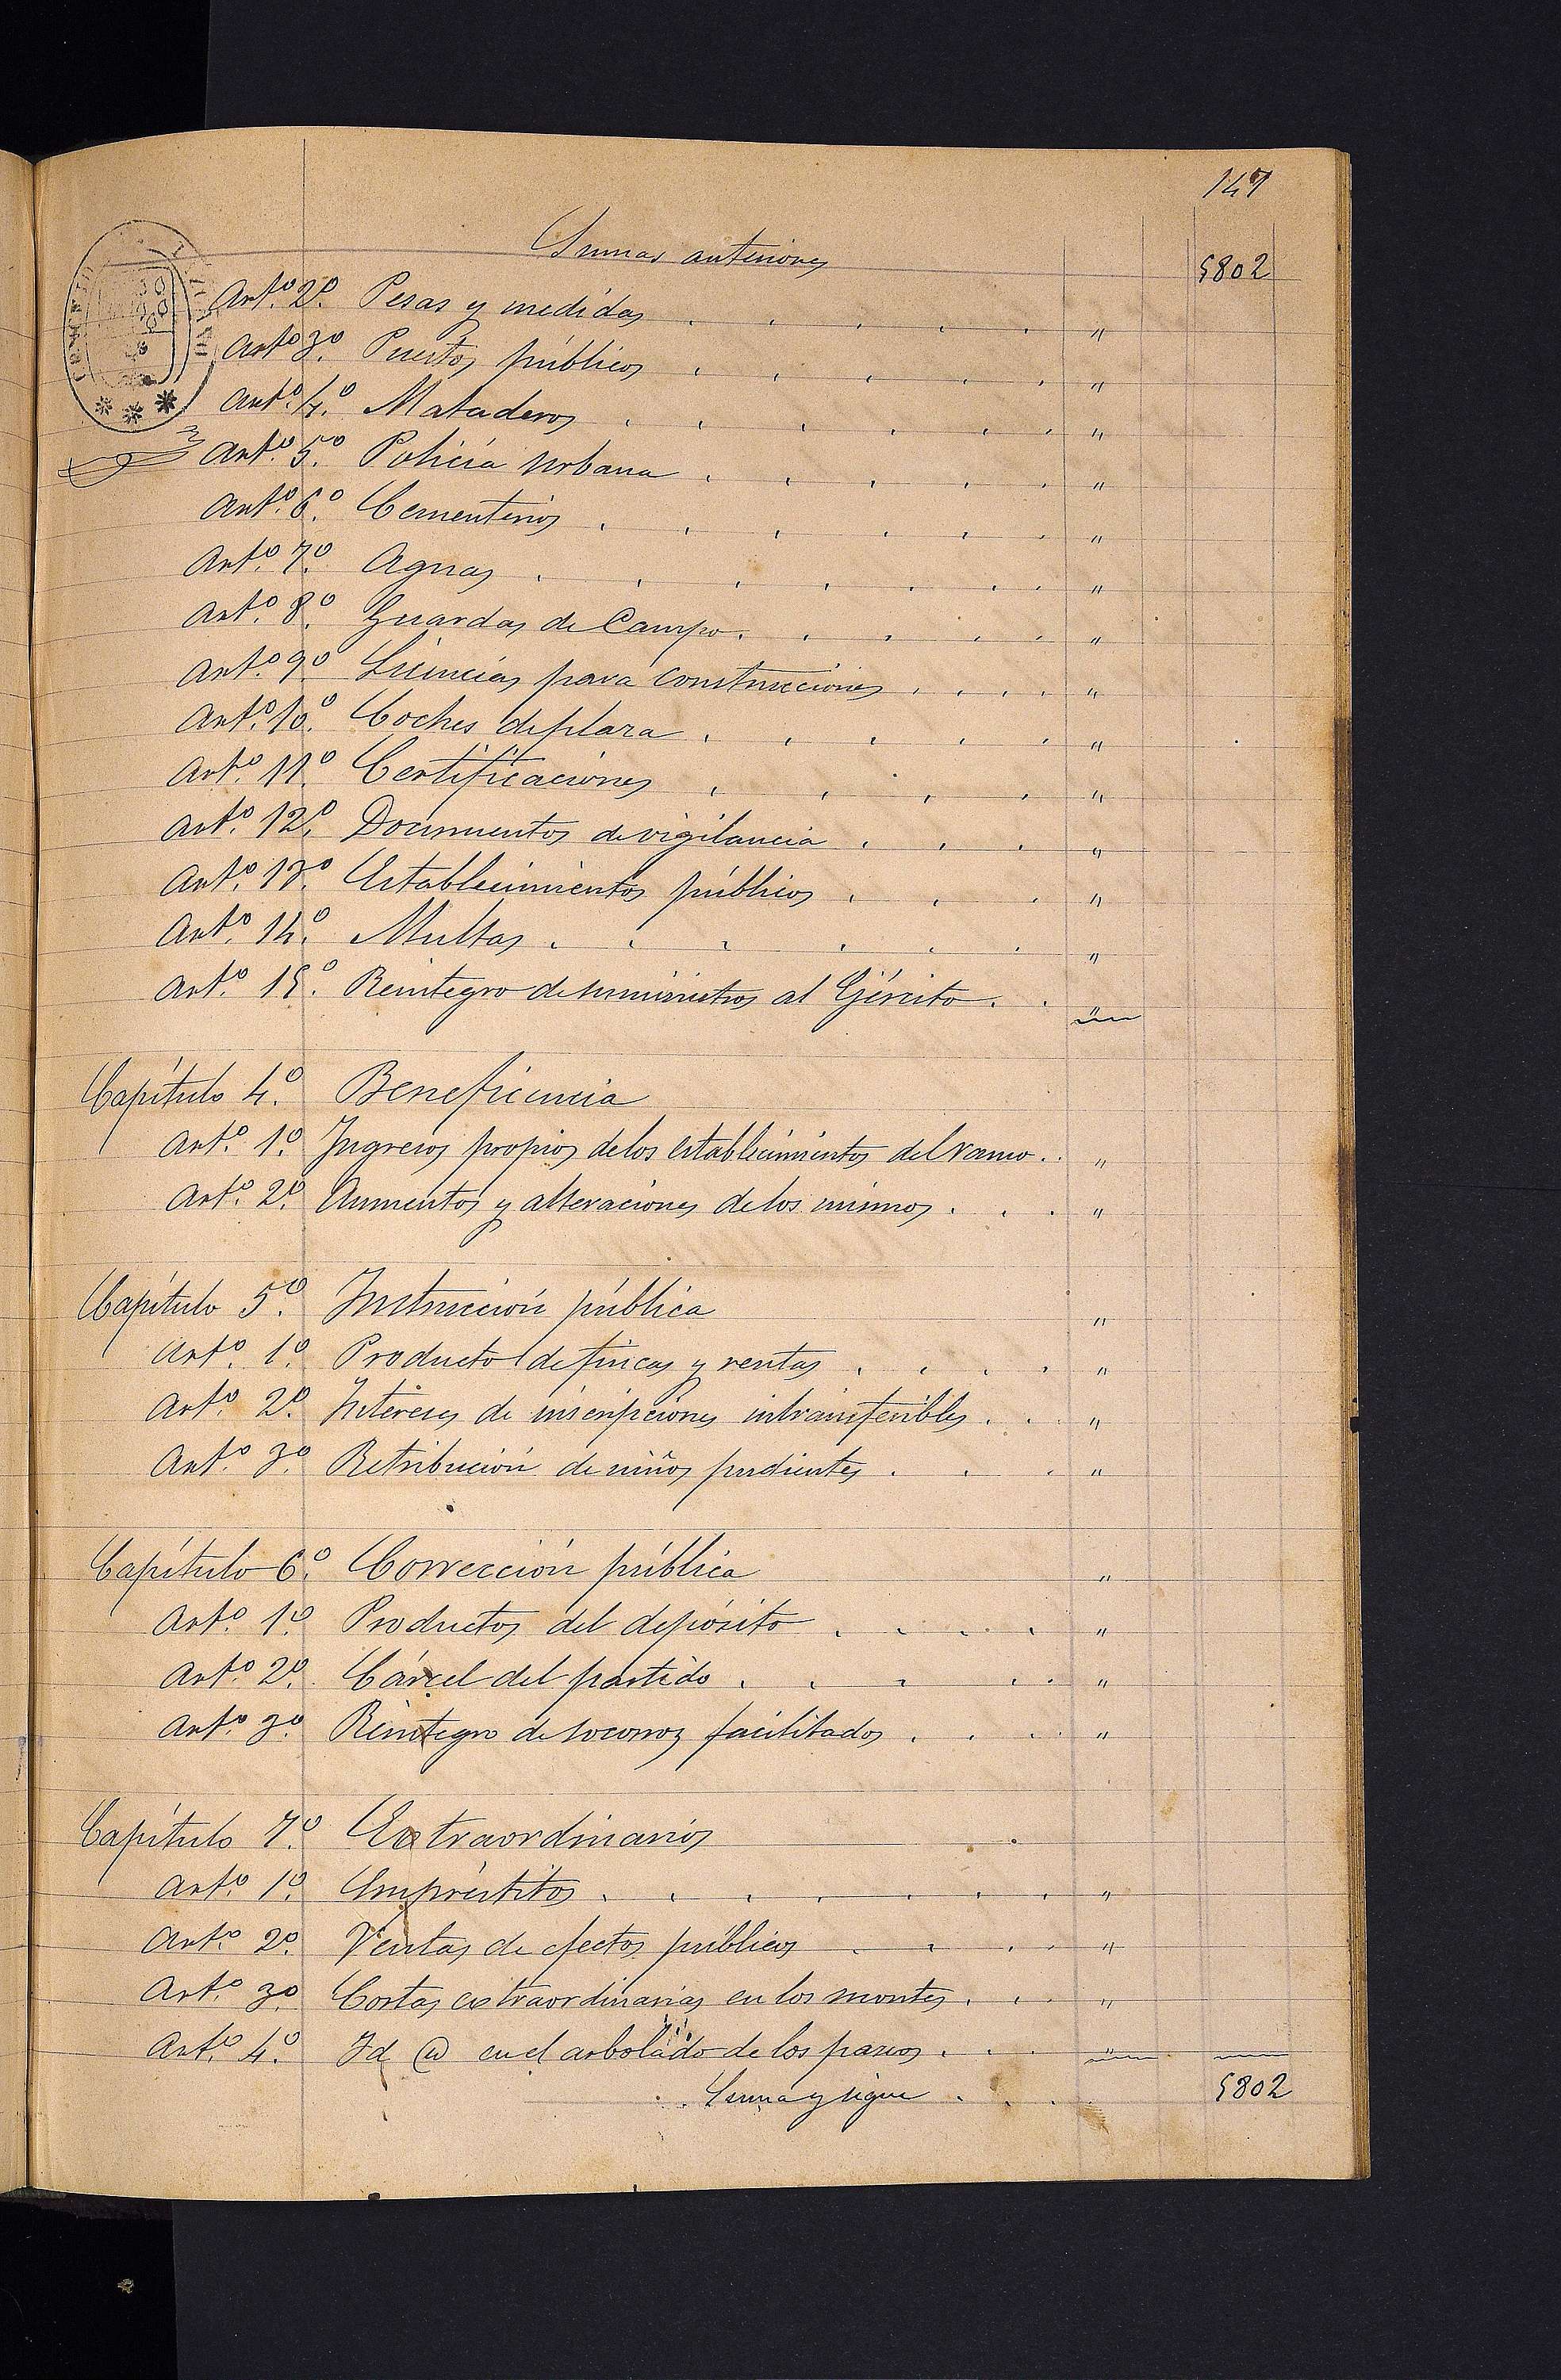 147
Sumas anteriores 5802
Art.º 2.º Pesas y medidas . . . . . "
Art.º 3.º Puestos públicos . . . . . "
Art.º 4.º Mataderos . . . . . . "
Art.º 5.º Policía urbana . . . . . "
Art.º 6.º Cementerios . . . . . . "
Art.º 7.º Aguas . . . . . . . "
Art.º 8.º Guardas de Campo. . . . . "
Art.º 9.º Licencias para construcciones . . . . "
Art.º 10.º Coches de plaza . . . . . "
Art.º 11.º Certificaciones . . . . "
Art.º 12.º Documentos de vigilancia . . . "
Art.º 13.º Establecimientos públicos . . . "
Art.º 14.º Multas . . . . . . "
Art.º 15.º Reintegro de suministros al Ejército . . "
Capítulo 4.º Beneficencia
Art.º 1.º Ingresos propios de los establecimientos del ramo . . "
Art.º 2.º Aumentos y alteraciones de los mismos . . . "
Capítulo 5.º Instrucción pública "
Art.º 1.º Producto de fincas y rentas . . . . "
Art.º 2.º Intereses de inscripciones intransferibles . . . "
Art.º 3.º Retribución de niños pudientes . . . "
Capítulo 6.º Corrección pública "
Art.º 1.º Productos del depósito . . . . "
Art.º 2.º Cárcel del partido . . . . . "
Art.º 3.º Reintegro de socorros facilitados . . . "
Capítulo 7.º Extraordinarios
Art.º 1.º Empréstitos . . . . . . . "
Art.º 2.º Ventas de efectos públicos . . . . "
Art.º 3.º Cortas extraordinarias en los montes . . . "
Art.º 4.º Id @ en el arbolado de los paseos . . . "
Suma y sigue . . . 5802